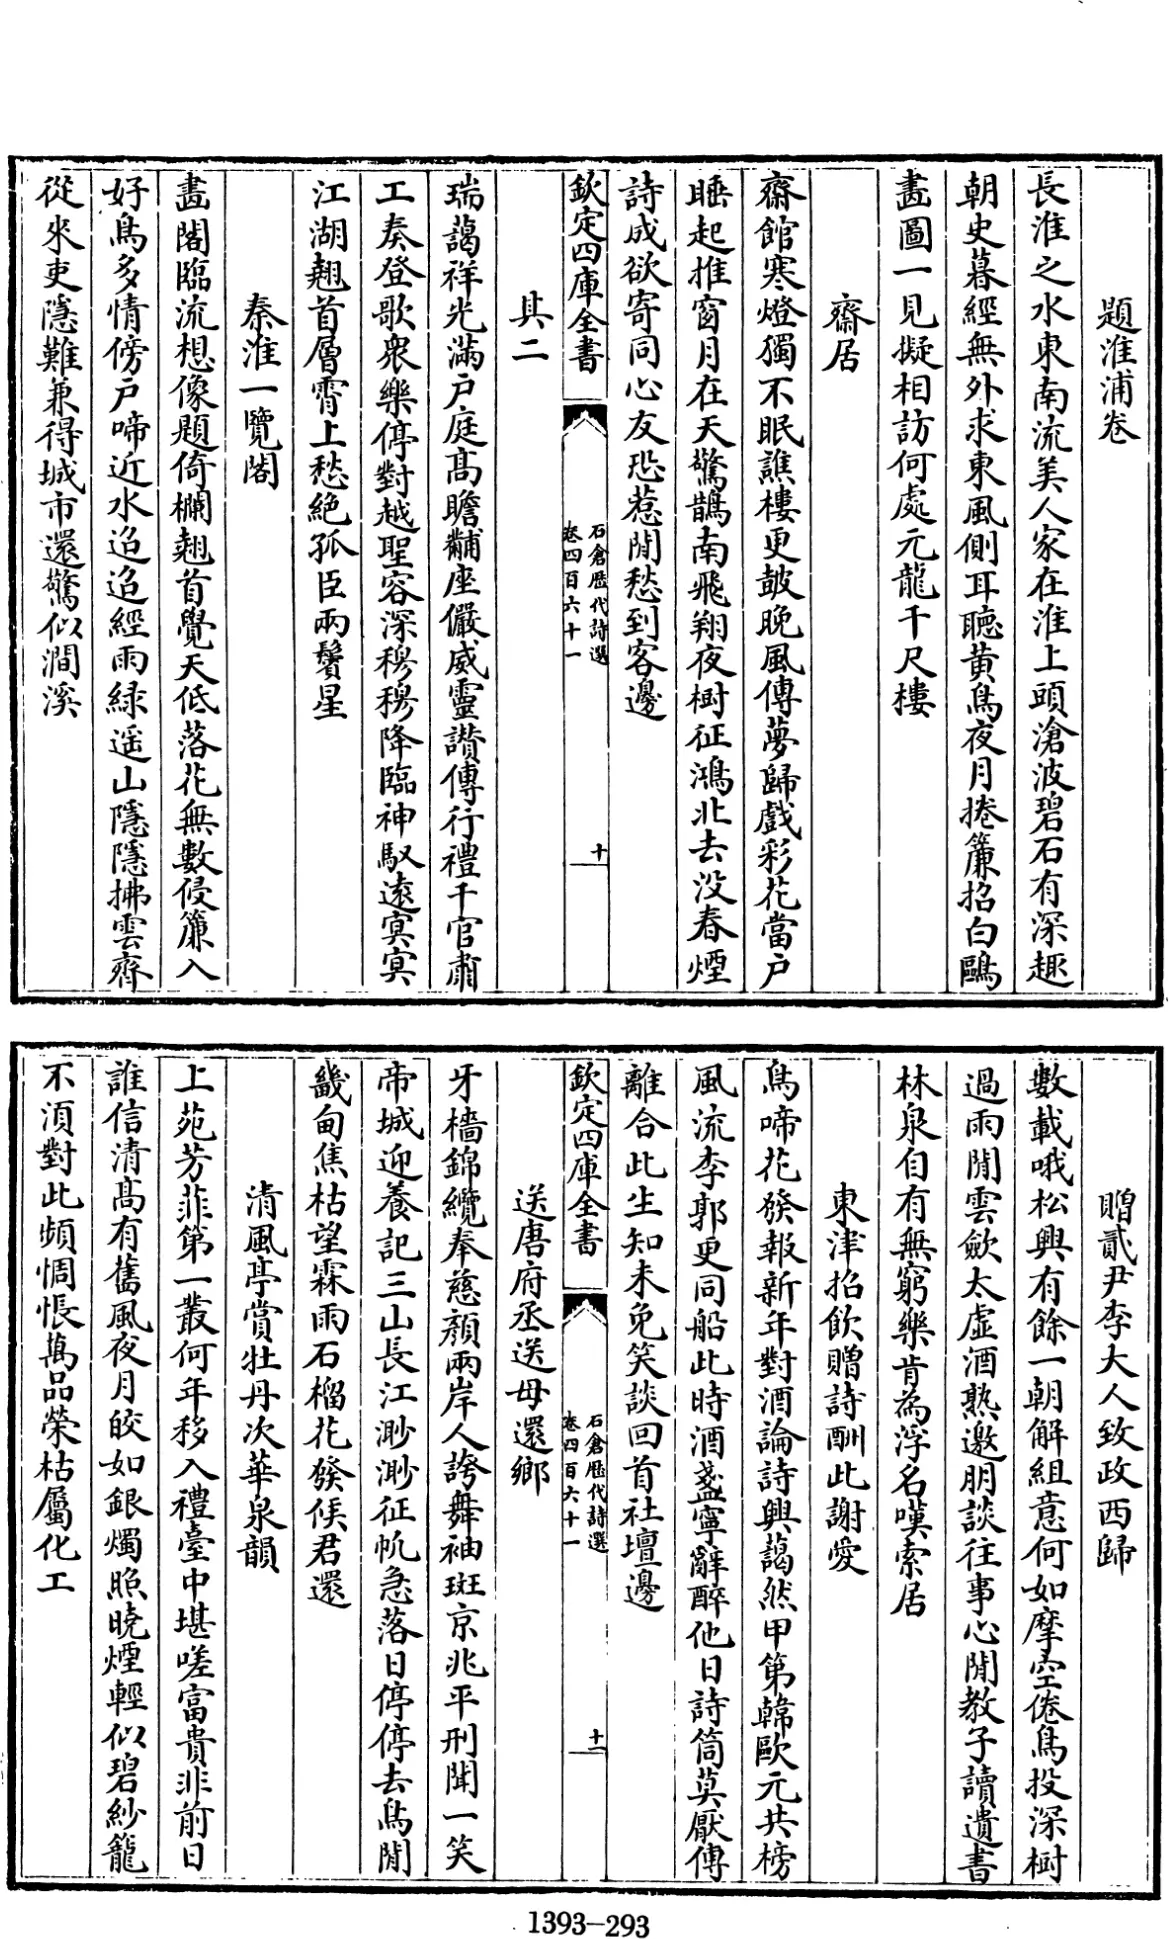 題淮浦卷
長淮之水東南流美人家在淮上頭滄波碧石有深趣
朝史暮經無外求東風側耳聴黄鳥夜月捲簾招白鷗
畫圖一見擬相訪何處元龍千尺樓
齋居
齋館寒燈獨不眠譙樓更皷晚風傳夢歸戲彩花當户
睡起推窗月在天驚鵲南飛翔夜樹征鴻北去没春煙
詩成欲寄同心友恐惹閒愁到客邊
欽定四庫全書
石倉歷代詩選
卷四百六十一
十
其二
瑞藹祥光滿户庭髙瞻黼座儼威靈讃傳行禮千官肅
工奏登歌衆樂停對越聖容深穆穆降臨神馭逺冥冥
江湖翹首層霄上愁絶孤臣兩鬢星
秦淮一覽閣
畫閣臨流想像題倚欄翹首覺天低落花無數侵簾入
好鳥多情傍户啼近水迢迢經雨緑遥山隱隱拂雲齊
從來吏隱難兼得城市還驚似澗溪
贈貳尹李大人致政西歸
數載哦松興有餘一朝解組意何如摩空倦鳥投深樹
過雨閒雲歛太虚酒熟邀朋談往事心閒教子讀遺書
林泉自有無窮樂肯為浮名嘆索居
東津招飲贈詩酬此謝愛
鳥啼花發報新年對酒論詩興藹然甲第韓歐元共榜
風流李郭更同船此時酒盞寧辭醉他日詩筒莫厭傳
離合此生知未免笑談回首社壇邊
欽定四庫全書
石倉歷代詩選
卷四百六十一
十一
送唐府丞送母還鄉
牙檣錦纜奉慈顔兩岸人誇舞袖斑京兆平刑聞一笑
帝城迎養記三山長江渺渺征帆急落日停停去鳥閒
畿甸焦枯望霖雨石榴花發候君還
清風亭賞牡丹次華泉韻
上苑芳菲第一叢何年移入禮臺中堪嗟富貴非前日
誰信清髙有舊風夜月皎如銀燭照曉煙輕似碧紗籠
不須對此頻惆悵萬品榮枯屬化工
1393-293